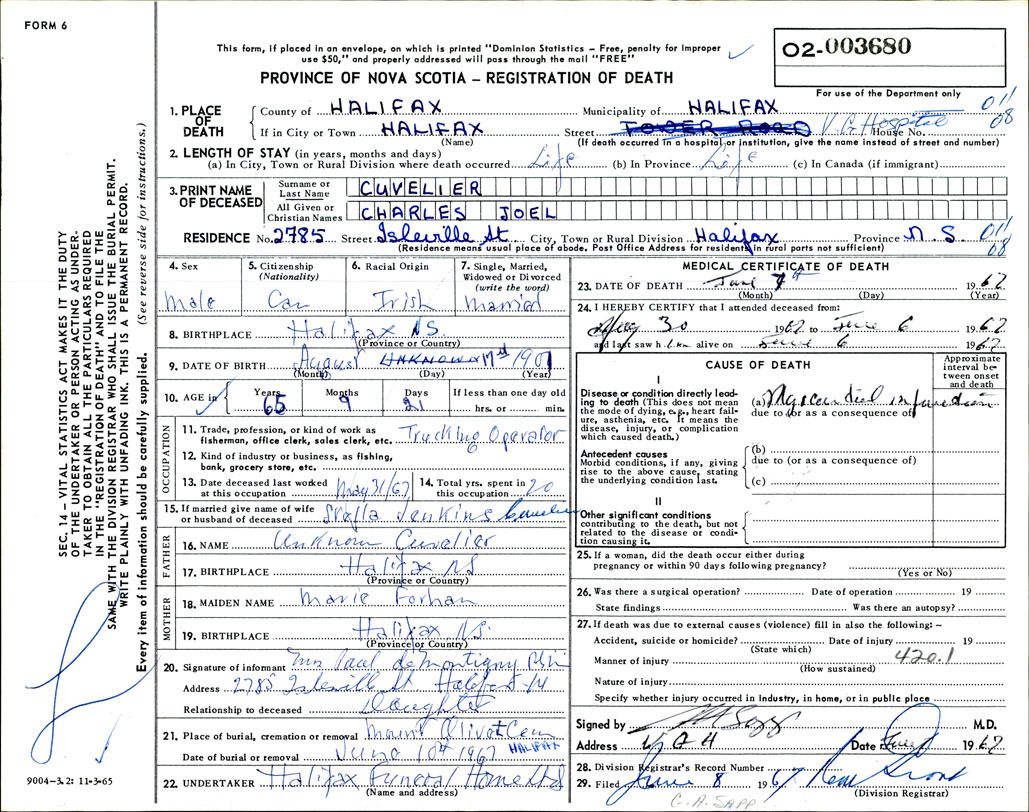 FORM 6
This form, if placed in an envelope, on which is printed "Dominion Statistics – Free, penalty for improper
use $50," and properly addressed will pass through the mail "FREE"
02-003680
PROVINCE OF NOVA SCOTIA – REGISTRATION OF DEATH
For use of the Department only
1. PLACE OF DEATH County of HALIFAX Municipality of HALIFAX 011
If in City or Town HALIFAX Street TOWER ROAD V.G. Hospital House No. 08
(Name) (If death occurred in a hospital or institution, give the name instead of street and number)
2. LENGTH OF STAY (in years, months and days)
(a) In City, Town or Rural Division where death occurred Life (b) In Province Life (c) In Canada (if immigrant)
3. PRINT NAME OF DECEASED Surname or Last Name CUVELIER
All Given or Christian Names CHARLES JOEL
RESIDENCE No. 2785 Street Isleville St. City, Town or Rural Division Halifax Province N.S. 011
(Residence means usual place of abode. Post Office Address for residents in rural parts not sufficient) 08
4. Sex Male
5. Citizenship (Nationality) Can
6. Racial Origin Irish
7. Single, Married, Widowed or Divorced (write the word) Married
8. BIRTHPLACE Halifax N.S.
(Province or Country)
9. DATE OF BIRTH August UNKNOWN 17 1901
(Month) (Day) (Year)
10. AGE in Years 65 Months 9 Days 21 If less than one day old
hrs. or min.
OCCUPATION
11. Trade, profession, or kind of work as fisherman, office clerk, sales clerk, etc. Trucking Operator
12. Kind of industry or business, as fishing, bank, grocery store, etc.
13. Date deceased last worked at this occupation May 31/67
14. Total yrs. spent in this occupation 20
15. If married give name of wife or husband of deceased Stella Jenkins Cuvelier
FATHER
16. NAME Unknown Cuvelier
17. BIRTHPLACE Halifax NS
(Province or Country)
MOTHER
18. MAIDEN NAME Marie Forhan
19. BIRTHPLACE Halifax N.S.
(Province or Country)
20. Signature of informant Mrs Paul deMontigny
Address 2785 Isleville St Halifax
Relationship to deceased Daughter
21. Place of burial, cremation or removal Mount Olivet Cem
HALIFAX
Date of burial or removal June 10th 1967
22. UNDERTAKER Halifax Funeral Home Ltd
(Name and address)
MEDICAL CERTIFICATE OF DEATH
23. DATE OF DEATH June 7th 1967
(Month) (Day) (Year)
24. I HEREBY CERTIFY that I attended deceased from:
30 1967 to June 6 1967
and last saw him alive on June 6 1967
CAUSE OF DEATH
Approximate interval between onset and death
I
Disease or condition directly leading to death (This does not mean the mode of dying, e.g., heart failure, asthenia, etc. It means the disease, injury, or complication which caused death.)
(a) Myocardial infarction
due to (or as a consequence of)
Antecedent causes
Morbid conditions, if any, giving rise to the above cause, stating the underlying condition last.
(b)
due to (or as a consequence of)
(c)
II
Other significant conditions contributing to the death, but not related to the disease or condition causing it.
25. If a woman, did the death occur either during pregnancy or within 90 days following pregnancy?
(Yes or No)
26. Was there a surgical operation? Date of operation 19
State findings Was there an autopsy?
27. If death was due to external causes (violence) fill in also the following: –
Accident, suicide or homicide? Date of injury 19
(State which)
Manner of injury 420.1
(How sustained)
Nature of injury
Specify whether injury occurred in industry, in home, or in public place
Signed by M.D.
Address V G H Date June 1967
28. Division Registrar's Record Number
29. Filed June 8 1967
(Division Registrar)
C.A. SAPP
SEC. 14 – VITAL STATISTICS ACT MAKES IT THE DUTY
OF THE UNDERTAKER OR PERSON ACTING AS UNDER-
TAKER TO OBTAIN ALL THE PARTICULARS REQUIRED
IN THE "REGISTRATION OF DEATH" AND TO FILE THE
SAME WITH THE DIVISION REGISTRAR WHO SHALL ISSUE THE BURIAL PERMIT.
WRITE PLAINLY WITH UNFADING INK. THIS IS A PERMANENT RECORD.
Every item of information should be carefully supplied. (See reverse side for instructions.)
9004-3.2: 11-3-65